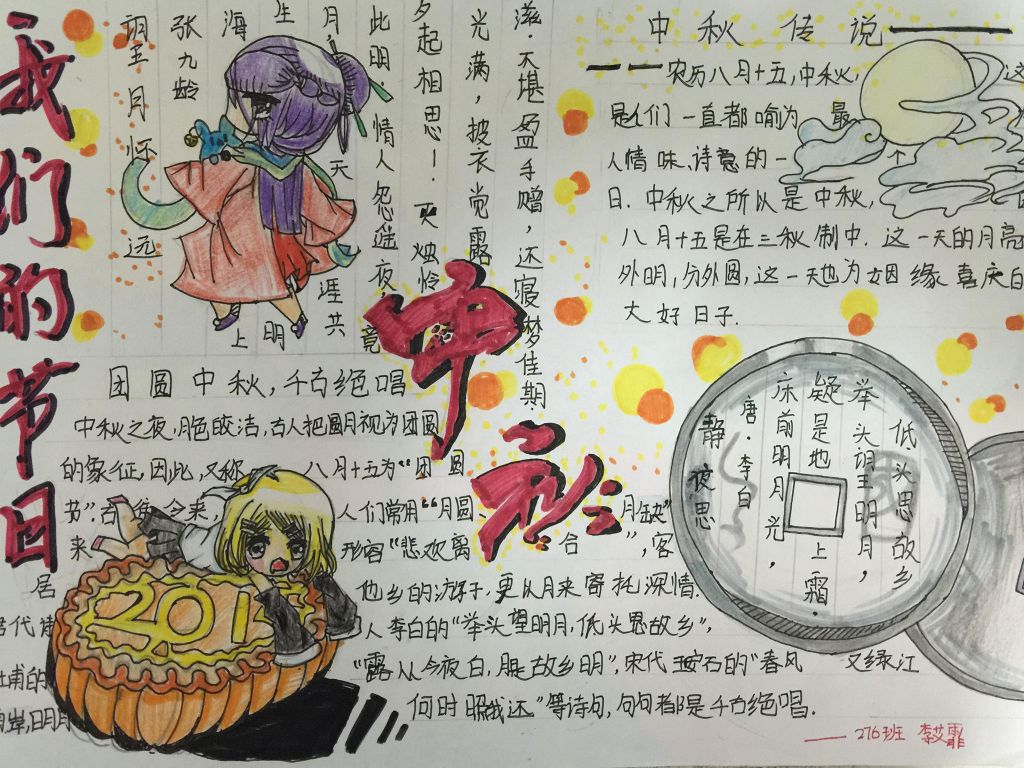 我们的节日
望月怀远
张九龄
海上
生明
月，天涯共
此明，情人怨遥夜，竟
夕起相思！灭烛怜
光满，披衣觉露
滋，不堪盈手赠，还寝梦佳期
中秋
中秋传说——
——农历八月十五,中秋, 这
是人们一直都喻为 最
人情味、诗意的一
日. 中秋之所以是中秋,
八月十五是在三秋制中. 这一天的月亮
外明,分外圆,这一天也为姻缘喜庆日
大好日子.
团圆中秋,千古绝唱
中秋之夜,月色皎洁,古人把圆月视为团圆
的象征,因此,又称 八月十五为"团圆
节".古 今来, 人们常用"月圆 月缺"
来 形容"悲欢离 合 ",客
居 他乡的游子,更以月来寄托深情.
唐代 人李白的"举头望明月,低头思故乡",
杜甫的 "露从今夜白,月是故乡明",宋代王安石的"春风 又绿江
南岸,明月 何时照我还"等诗句,句句都是千古绝唱.
201
静夜思
唐·李白
床前明月光，
疑是地上霜.
举头望明月，
低头思故乡
——276班 李艾霏